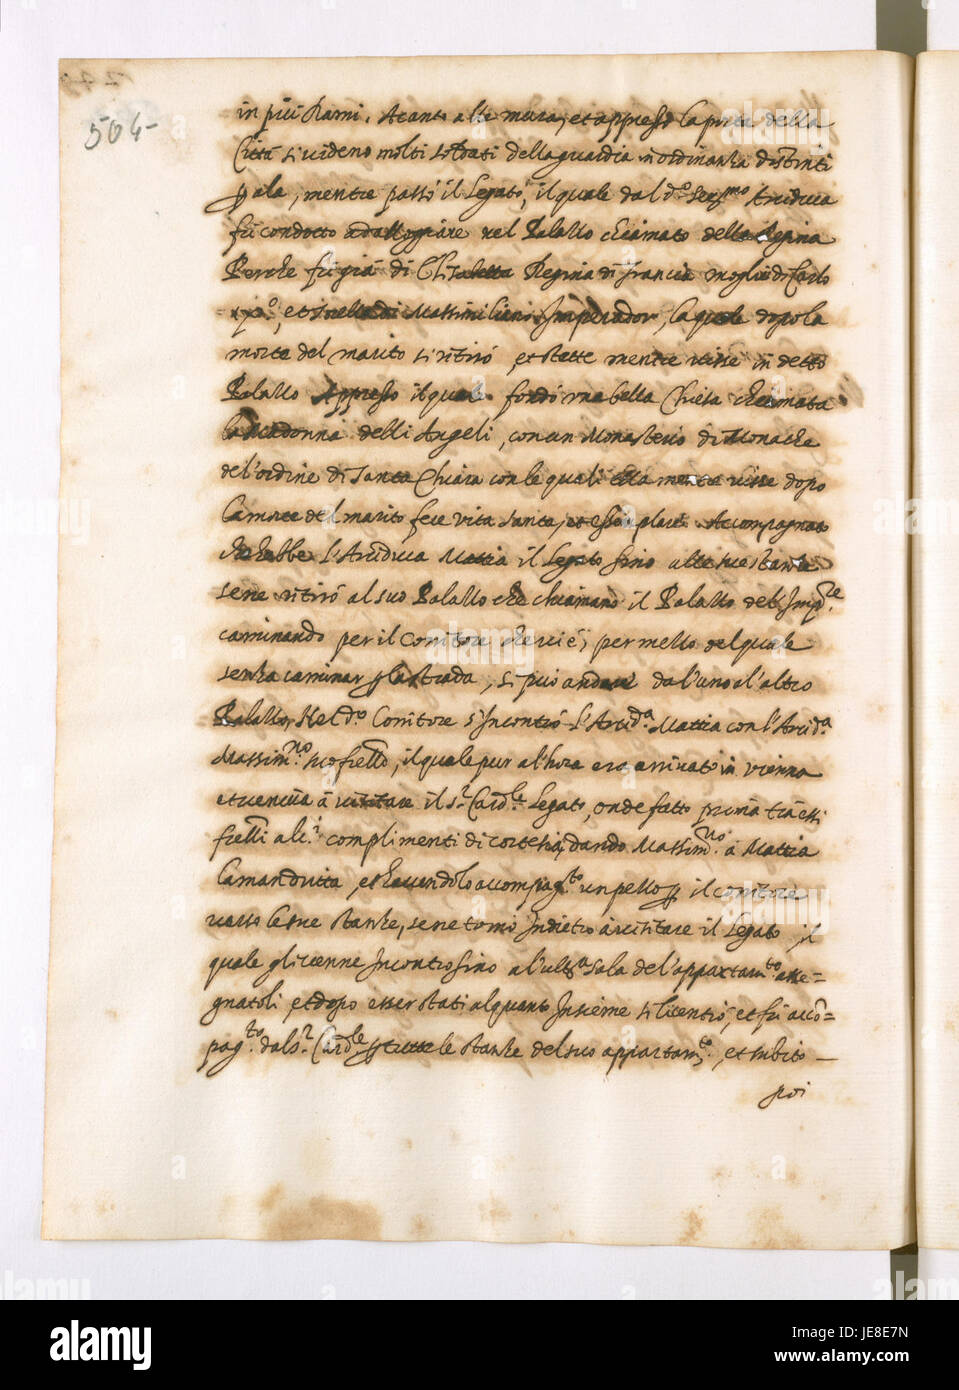 504
in più Rami. Acanto alle mura, et appresso la porta della
Città si videno molti soldati della guardia in ordinanza distinti
p ala, mentre passò il Legato, il quale dal d.º Ser.mo Arciduca
fù condotto ad alloggiare nel Palazzo chiamato della Regina
Perche fù già di Elisabetta Regina di francia moglie di Carlo
ixº., et sorella di Massimiliano Imperador, la quale dopo la
morte del marito si ritirò, et stette mentre visse in detto
Palazzo Appresso il quale fondò una bella Chiesa chiamata
la Madonna delli Angeli, con un Monasterio di Monache
del'ordine di Santa Chiara con le quali ella mentre visse dopo
la morte del marito fece vita santa, et essemplare. Accompagnato
che hebbe l'Arciduca Mattia il Legato sino alle sue stanze
sene ritirò al suo Palazzo che chiamano il Palazzo del'Imp.re
caminando per il Corritore che vi è, per mezzo del quale
senza caminar p la strada, si può andare da l'uno al'altro
Palazzo, Nel d.º Corritore s'Incontrò l'Arcid.a Mattia con l'Arcid.a
Massim.no suo fratello, il quale pur al'hora era arrivato in vienna
et veniva à visitare il S.r Card.le Legato, onde fatto prima trà essi
fratelli alc.i complimenti di cortesia, dando Massim.no à Mattia
la man dritta, et havendolo accompag.to un pezzo p il corritore
verso le sue stanze, sene tornò Indietro à visitare il Legato, il
quale gli venne Incontro sino a l'ult.a sala de l'appartam.to asse=
gnatoli, et dopo esser stati alquanto Insieme si licentiò, et fù accō=
pag.to dal S.r Card.le p tutte le stanze del suo appartam.to, et subito
poi
alamy
Image ID: JE8E7N
www.alamy.com